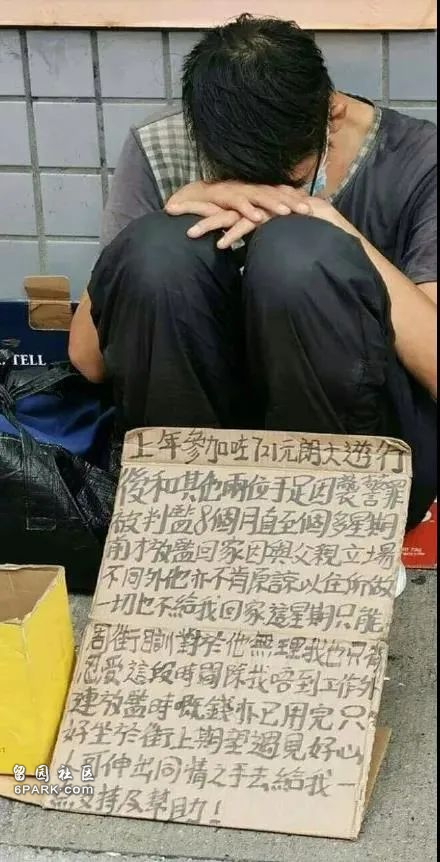 TELL
上年參加咗721元朗大遊行
後和其他兩位手足因襲警罪
被判監8個月直至個多星期
前才放監回家因與父親立場
不同外他亦不肯原諒以往所做
一切也不給我回家這星期只能
周街訓對於他無理我也只有
忍受這段時間除我唔到工作外
連放監時嘅錢亦已用完只
好坐於街上期望遇見好心
人可伸出同情之手去給我一
點支持及幫助!
留园社区
6PARK.COM